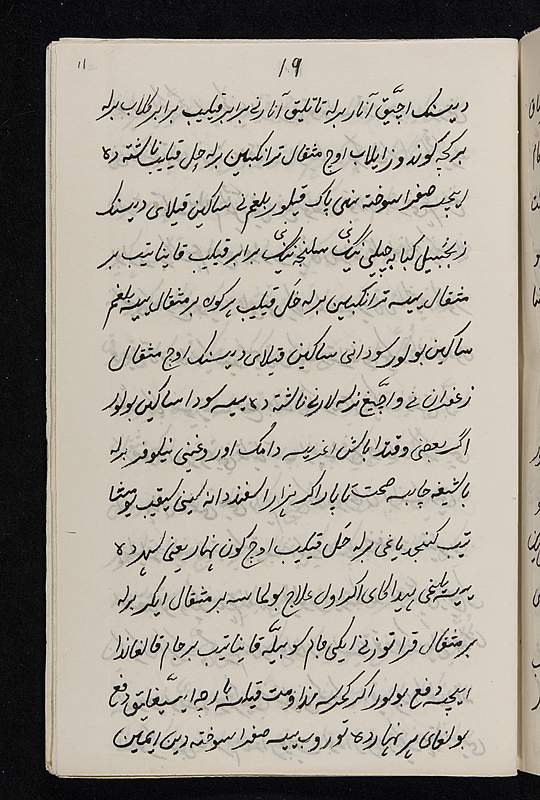 ۱۱
۱۹
دیسنک اجیّق آنار برله تاتلیق آنارنی برابر قیلیب برابر کلاب برله
بر کچه کوندوز ایلاب اوج مثقال ترانکبین برله حل قیلیب ناشته ده
ایچسه صفرا سوخته نی پاک قیلور بلغم نی ساکین قیلای دیسنک
زنجبیل کبابه چینی نینک سلیخه نینک برابر قیلیب قایناتیب بر
مثقال ییسه ترانکبین برله حل قیلیب هر کون بر مثقال ییسه بلغم
ساکین بولور سودانی ساکین قیلای دیسنک اوج مثقال
زعفران نی و اچیّغ نرسه لارنی ناشته ده ییسه سودا ساکین بولور
اگر بعضی وقتدا باش اغریسه دامک اور وغنی نیلوفر برله
باشیغه چابسه صحت تاپار اکر هزار اسفند دانه سینی یومشا
تیب کنجی یاغی برله حل قیلیب اوج کون نهار یعنی سحرده
ییسه بلغمی پیدا اکر اول علاج بولماسه بر مثقال ایکر برله
بر مثقال قرا توزنی ایکی جام سو بیلّه قایناتیب بر جام قالغاندا
ایچسه دفع بولور اکر مداومت قیلسه بارجه ایسیغلیق دفع
بولغای هر نهارده ییسه صفرا سوخته دین ایمین